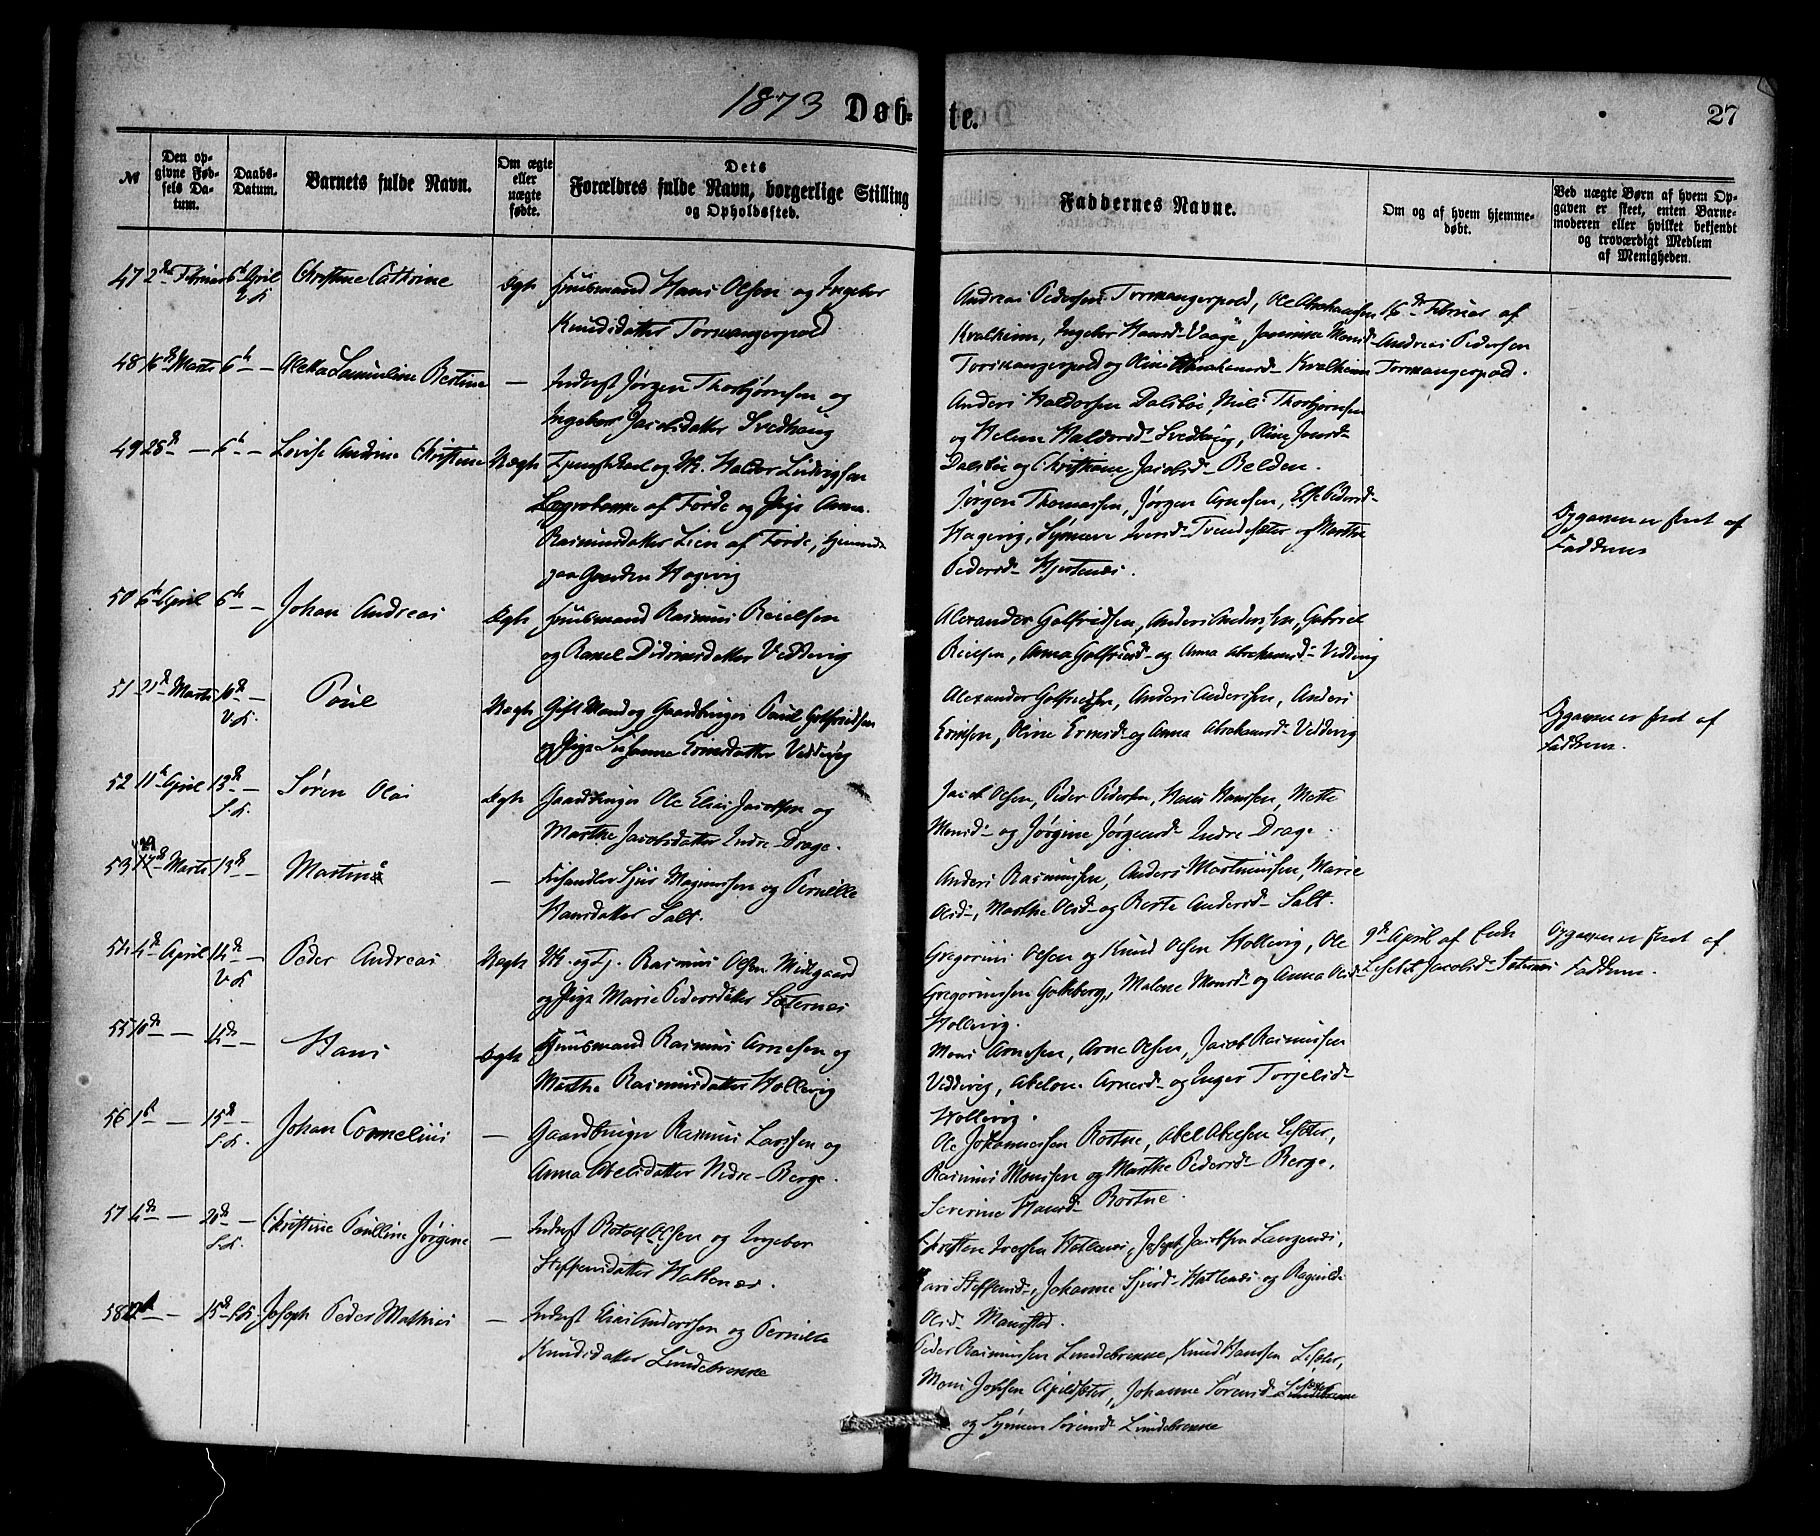 1873 Døb- te. 27
№
Den opgivne Fødsels Datum.
Daabs-Datum.
Barnets fulde Navn.
Om ægte eller uægte fødte.
Dets Forældres fulde Navn, borgerlige Stilling og Opholdssted.
Faddernes Navne.
Om og af hvem hjemmedøbt.
Ved uægte Børn af hvem Opgaven er skeet, enten Barnemoderen eller hvilket bekjendt og troværdigt Medlem af Menigheden.
47 2de Februar 6te April V.K. Christine Cathrine Ægte Huusmand Hans Olsen og Ingebor
Knudsdatter Tormangerpold
Andreas Pedersen Tormangerpold, Ole Abrahamsen
Kvalheim, Ingebor Hansd- Vaage, Monsd-
Tormangerpold og Oline Abrahamsd- Kvalheim
16de Februar af
Andreas Pedersen
Tormangerpold.
48 16de Marts 6te — Rasmuline Bertine — Inderst Jørgen Thorbjørnsen og
Ingebor Jacobsdatter
Anders Haldorsen Dalsbøe, Nils Thorbjørnsen
og Helene Haldorsd- Oline Jonsd-
Dalsbøe og Christiane Jacobsd- Belden.
49 28de — 6te — Lovise Andrine Christine Uægte Tjenestekarl og U.K. Haldor Ludvigsen
af Førde og Pige Anna
Rasmusdatter Lien af Førde,
paa Gaarden Hagevig
Jørgen Thomassen, Jørgen Arnesen, Else Pedersd-
Hagevig, Synneve Iversd- og Marthe
Pedersd-
Opgaven er skeet af
Fadderne
50 6te April 6te — Johan Andreas Ægte Huusmand Rasmus Reielsen
og Rakel Didriksdatter Veddevig
Alexander Golfridsen, Anders Andersen, Gabriel
Reielsen, Anna Golfridsd- og Anna Abrahamsd- Veddevig
51 21de Marts 10de — V.K. Poul Uægte Gift Mand og Gaardbruger Poul Golfridsen
og Pige Susanna Veddevig
Alexander Golfridsen, Anders Andersen, Anders
Oline og Anna Abrahamsd- Veddevig
Opgaven er skeet af
Fadderne.
52 11te April 13de S.K. Søren Olai Ægte Gaardbruger Ole Elias Jacobsen og
Marthe Jacobsdatter Indre Drage.
Jacob Olsen, Peder Pedersen, Hans Hansen, Mette
Monsd- og Jørgine Jørgensd- Indre Drage.
53 Marts 13de — Martin — Sjur Magnussen og Pernille
Hansdatter Salt.
Anders Rasmussen, Anders Mortensen, Marie
Olsd-, Marthe Olsd- og Berte Andersd- Salt.
54 4de April 14de — V.K. Peder Andreas Uægte U.K. og Tj. Rasmus Olsen Midtgaard
og Pige Marie Pedersdatter Sæternæs
Gregorius Olsen og Knud Olsen Hollevig, Ole
Gregoriussen Gotteberg, Malene Monsd- og Anna Olsd-
Hollevig.
9de April af Enke
Lisebet Jacobsd- Sæternæs
Opgaven er skeet af
Fadderne.
55 10de — 14de — Hans Ægte Huusmand Rasmus Arnesen og
Marthe Rasmusdatter Hollevig
Mons Arnesen, Arne Olsen, Jacob Rasmussen
Veddevig, Abelone Arnesd- og Inger Torjelsd-
Hollevig.
56 1ste — 15de — S.K. Johan Cornelius — Gaardbruger Rasmus Larssen og
Anna Abelsdatter Nedre-Berge.
Ole Johannessen Rostne, Abel Abelsen Lister,
Rasmus Monssen og Marthe Pedersd- Berge,
Severine Hansd- Rostne.
57 4de — 20de — S.K. Christine Poulline Jørgine — Inderst Botolf Olsen og Ingebor
Steffensdatter Hatlenæs.
Christen Iversen Hatlenæs, Joseph Jacobsen Langenæs,
Kari Steffensd-, Johanne Sjursd- Hatlenæs og Ragnilde
Olsd- Maurstad.
58 — 15de S.K. Joseph Peder Mathias — Inderst Elias Andersen og Pernille
Knudsdatter Lundebrekke
Peder Rasmussen Lundebrekke, Knud Hanssen Lister,
Mons Apildseter, Johanne Sørensd- Lister
og Synneve Sørensd- Lundebrekke